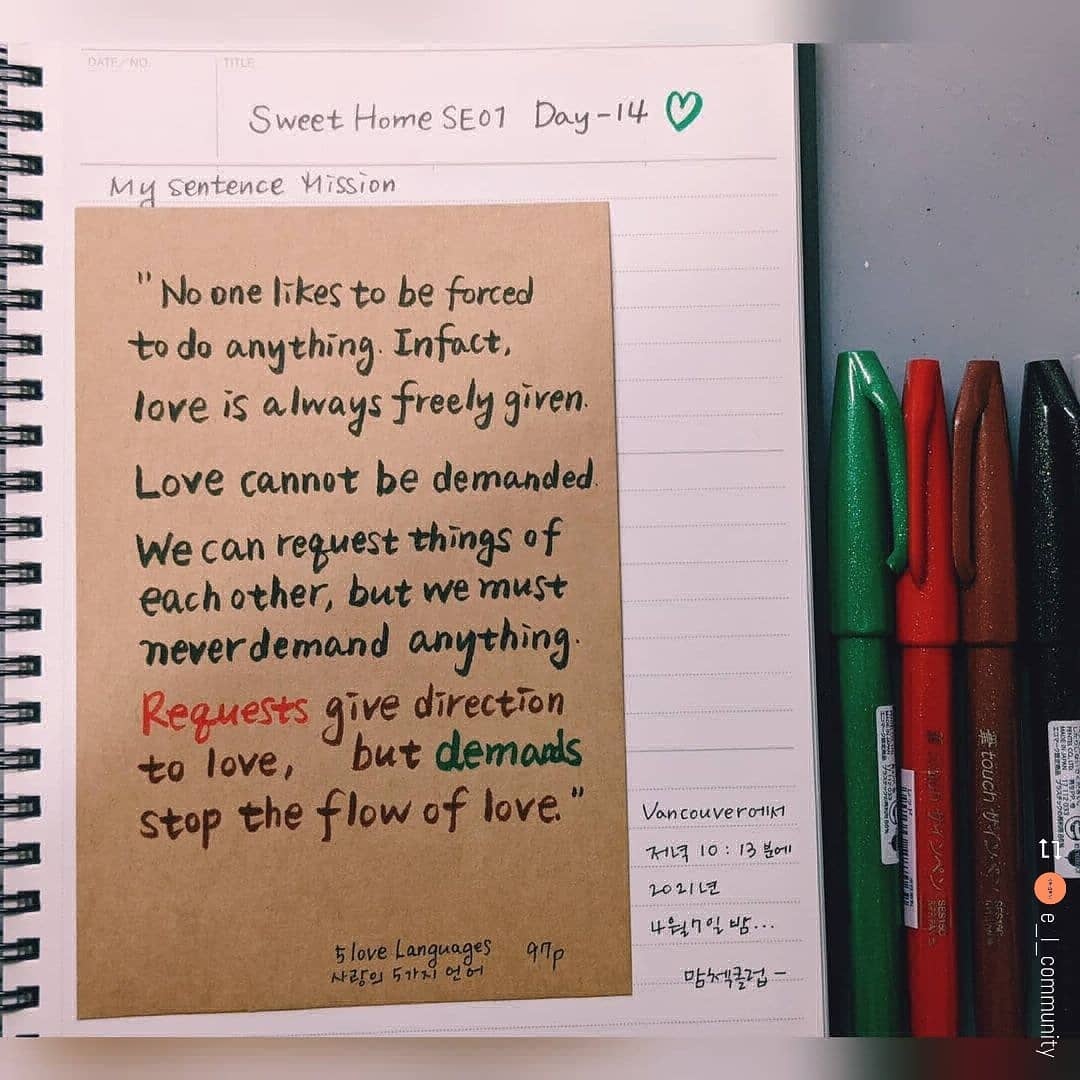 DATE / NO.
TITLE
Sweet Home SE01 Day-14
My sentence Mission
"No one likes to be forced
to do anything. Infact,
love is always freely given.
Love cannot be demanded.
We can request things of
each other, but we must
never demand anything.
Requests give direction
to love, but demands
stop the flow of love."
5 love Languages 97p
사랑의 5가지 언어
Vancouver에서
저녁 10:13분에
2021년
4월7일 밤...
맘체크클럽-
touch サインペン
SES15C
e_l_community